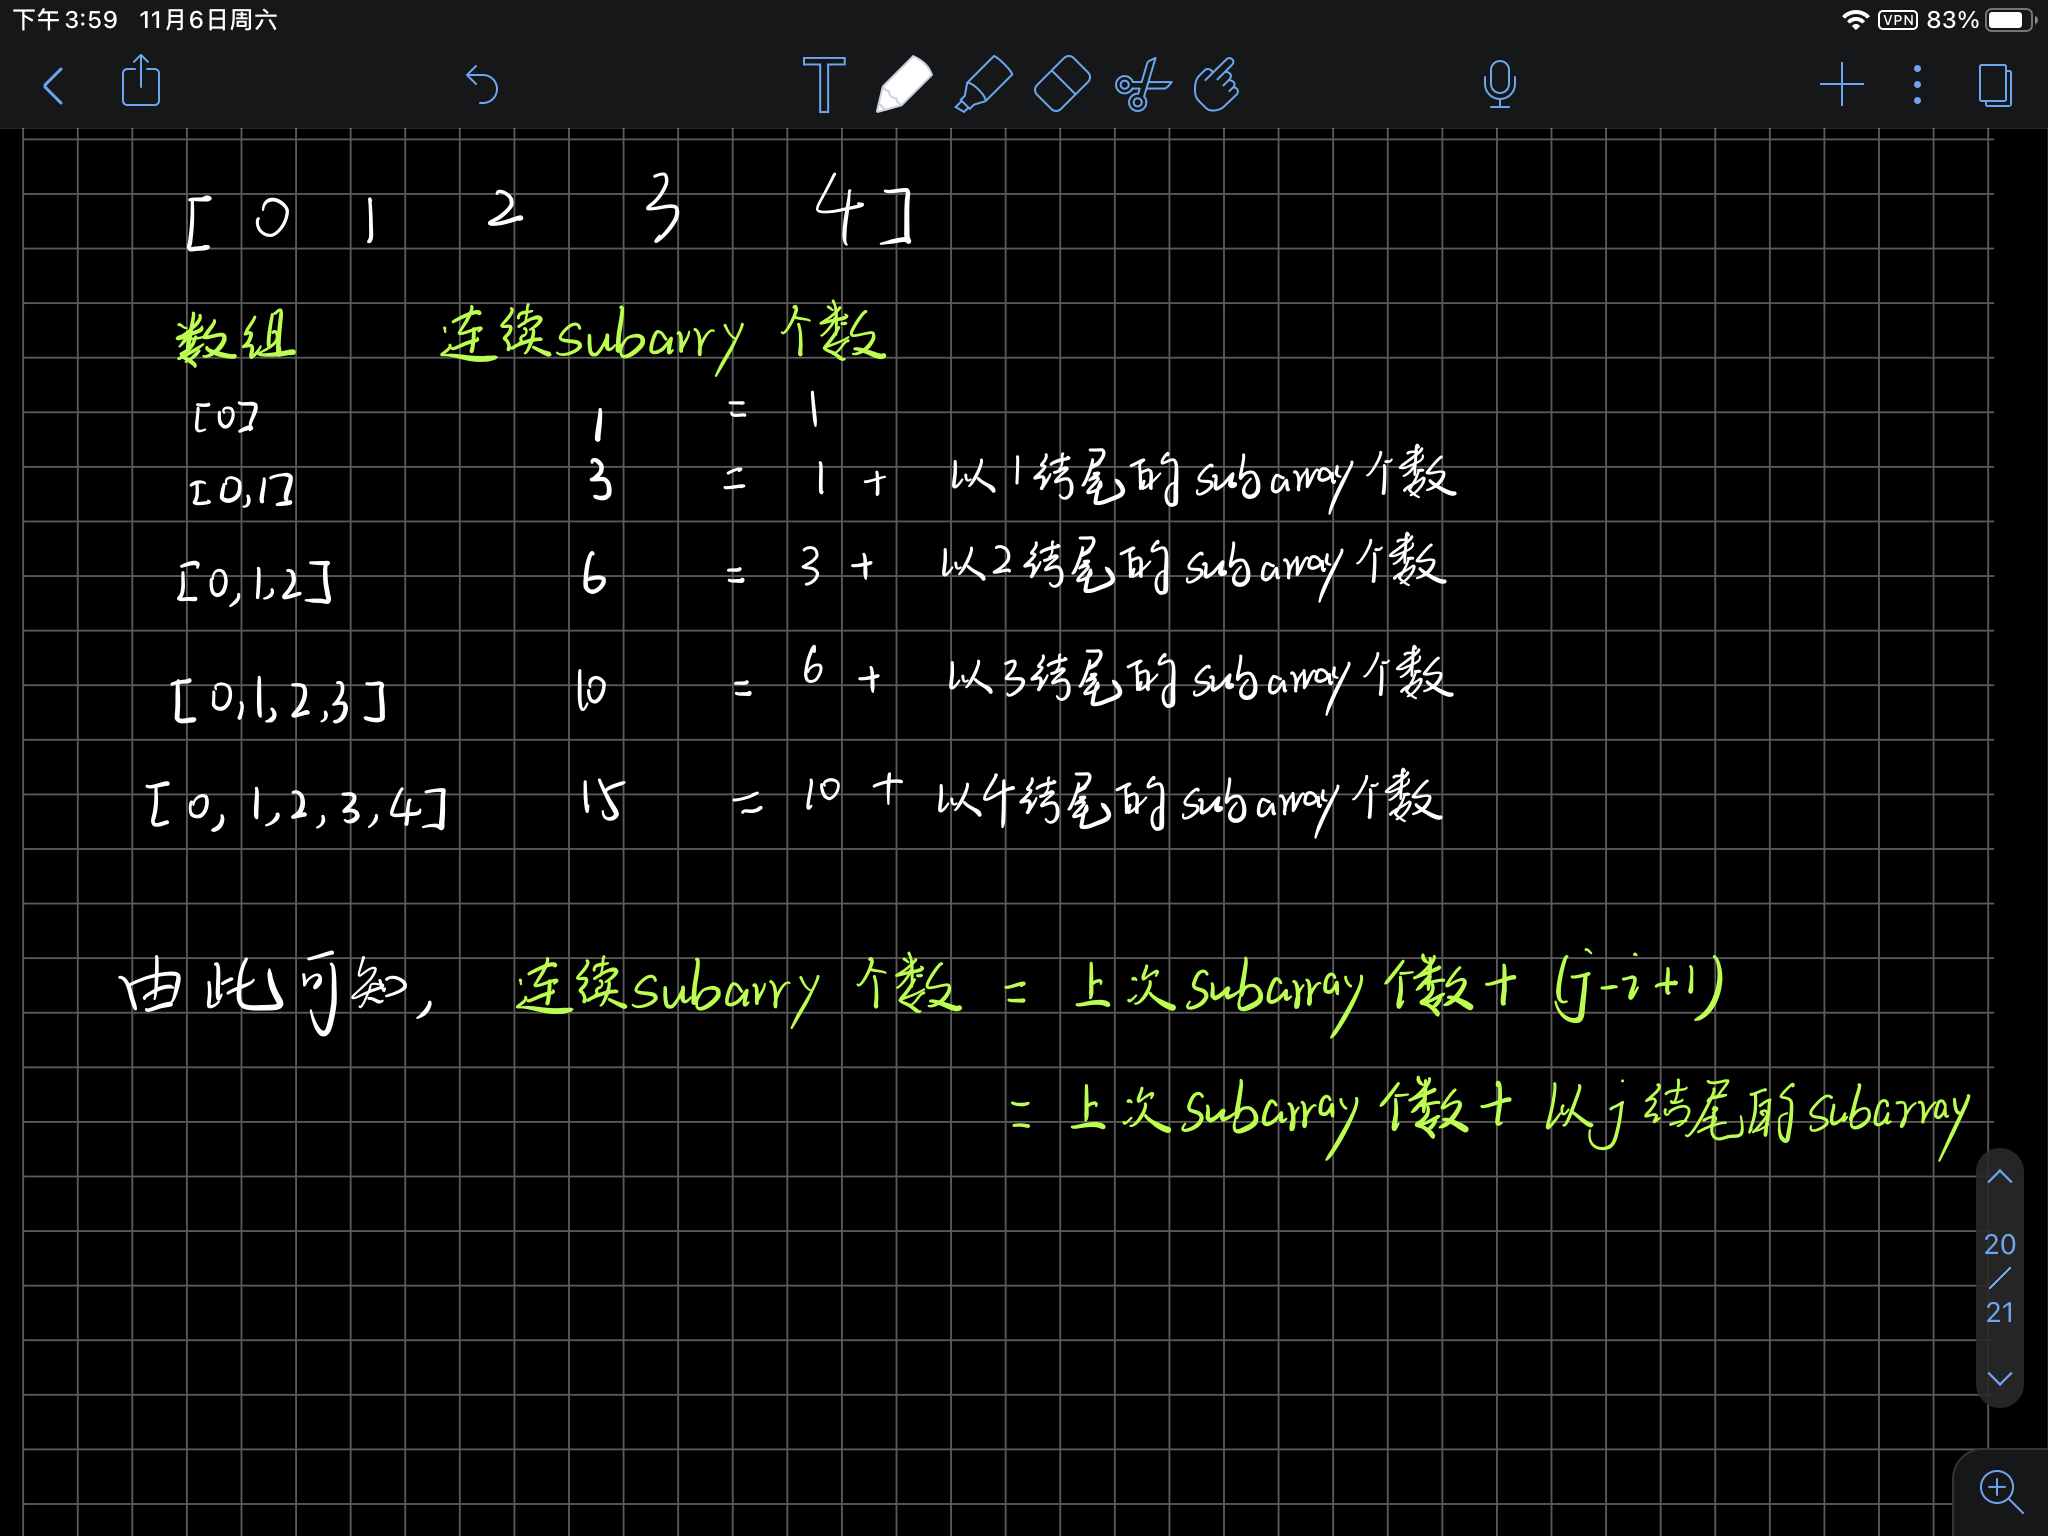 下午3:59 11月6日周六 VPN 83%
[ 0 1 2 3 4 ]
数组 连续subarry 个数
[0] 1 = 1
[0,1] 3 = 1 + 以1结尾的subarray个数
[0,1,2] 6 = 3 + 以2结尾的subarray个数
[0,1,2,3] 10 = 6 + 以3结尾的subarray个数
[0,1,2,3,4] 15 = 10 + 以4结尾的subarray个数
由此可知, 连续subarry 个数 = 上次subarray个数+ (j-i+1)
= 上次subarray个数+ 以j结尾的subarray
20
/
21